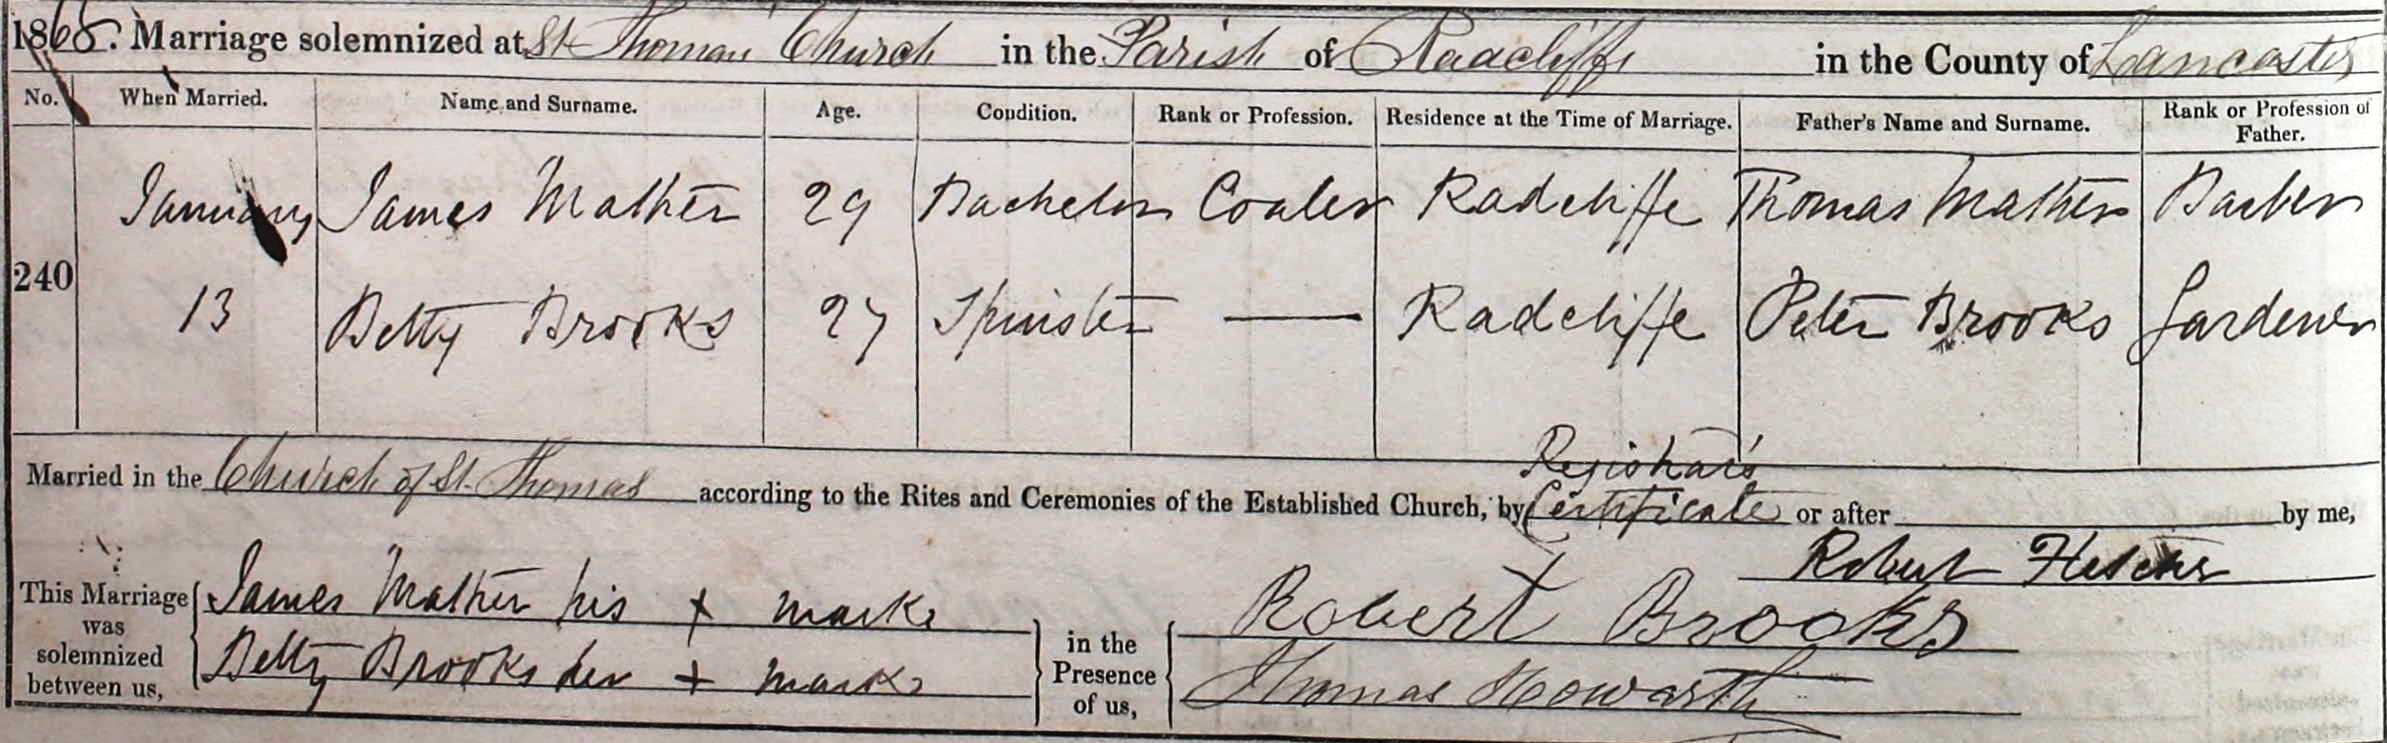 1868. Marriage solemnized at St Thomas' Church in the Parish of Radcliffe in the County of Lancaster
No. When Married. Name and Surname. Age. Condition. Rank or Profession. Residence at the Time of Marriage. Father's Name and Surname. Rank or Profession of Father.
January James Mather 29 Bachelor Coaler Radcliffe Thomas Mather Barber
240
13 Betty Brooks 27 Spinster — Radcliffe Peter Brooks Gardener
Registrar's
Married in the Church of St. Thomas according to the Rites and Ceremonies of the Established Church, by Certificate or after by me,
Robert Fletcher
This Marriage was solemnized between us, James Mather his + mark
Betty Brooks her + mark
in the Presence of us, Robert Brooks
Thomas Howarth